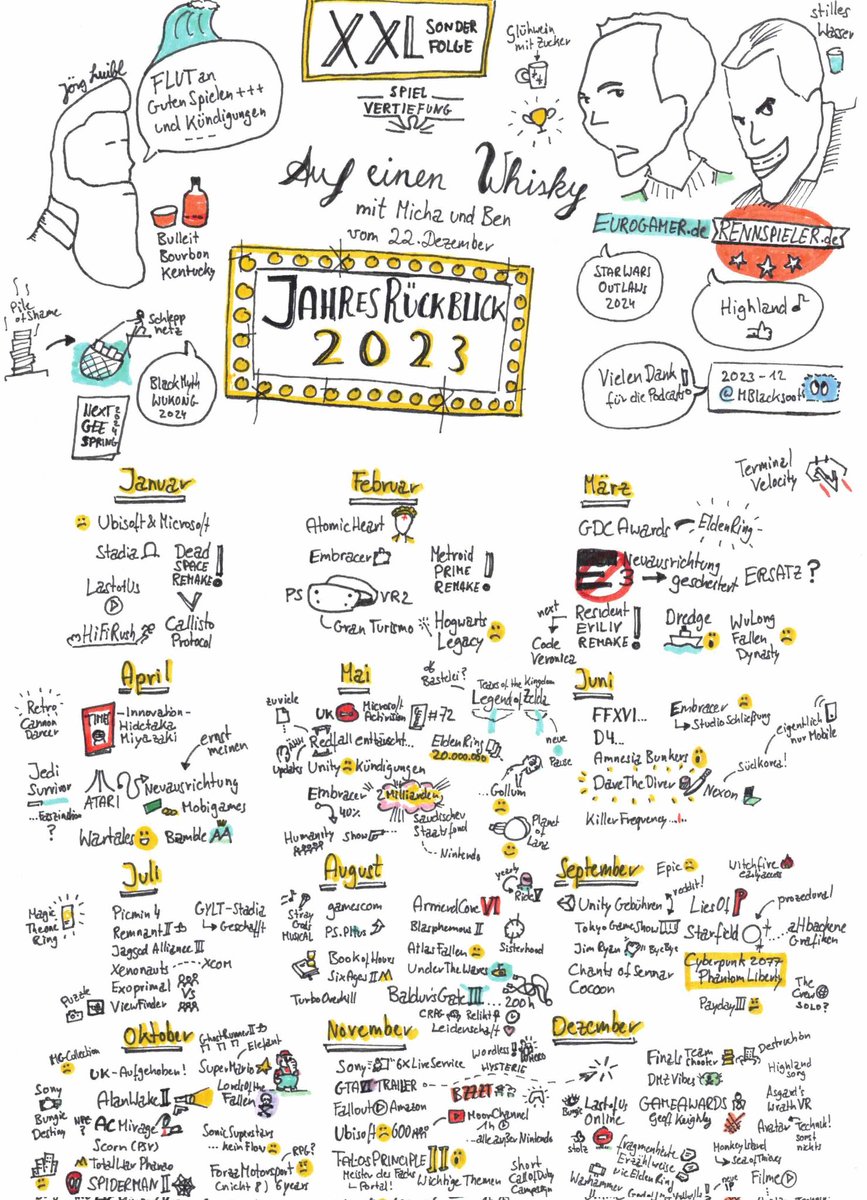 XXL SONDER
FOLGE
SPIEL
VERTIEFUNG
Glühwein
mit Zucker
stilles
Wasser
Jörg Luibl
FLUT an
Guten Spielen +++
und Kündigungen
---
Bulleit
Bourbon
Kentucky
Auf einen Whisky
mit Micha und Ben
vom 22. Dezember
JAHRESRÜCKBLICK
2023
EUROGAMER.de
RENNSPIELER.de
STAR WARS
OUTLAWS
2024
Highland
Vielen Dank!
für die Podcasts
2023-12
Pile
of Shame
Schlepp
netz
Black Myth
WUKONG
2024
NEXT
GEE
SPRING
2024
Terminal
Velocity
Januar
Ubisoft & Microsoft
Stadia
Dead
SPACE
REMAKE!
Last of Us
HiFi Rush
Callisto
Protocol
Februar
Atomic Heart
Embracer
Metroid
PRIME
REMAKE!
PS VR2
Gran Turismo
Hogwarts
Legacy
März
GDC Awards
Elden Ring
E3 Neuausrichtung
gescheitert ERSATZ?
next
Code
Veronica
Resident
EVIL IV
REMAKE!
Dredge
WuLong
Fallen
Dynasty
April
Retro
Cannon
Dancer
TIME
-Innovation-
Hidetaka
Miyazaki
Jedi
Survivor
...Faszination
?
ATARI
Neuausrichtung
ernst
meinen
Mobigames
Wartales
Bramble
Mai
zuviele
Updates
UK
Microsoft
Activision
#72
Redfall enttäuscht...
Unity Kündigungen
Embracer
40%
2 Milliarden
Saudischer
Staatsfond
Humanity
Show
... Nintendo
ob
Bastelei?
Tears of the Kingdom
Legend of Zelda
Elden Ring
20.000.000
neue
Pause
Gollum
Planet
of Lana
Juni
FFXVI...
D4...
Amnesia Bunkers
Dave The Diver
Killer Frequency...!
Embracer
Studio Schließung
eigentlich
nur Mobile
Südkorea!
Nexon
Juli
Magic
The one
Ring
Puzzle
Picmin 4
Remnant II
Jagged Alliance III
Xenonauts ---- XCOM
Exoprimal
Vs
ViewFinder
GYLT-Stadia
Geschafft
August
Stray
Gods
MUSICAL
gamescom
PS Plus
Book of Hours
Six Ages II
Turbo Overkill
Armored Core VI
Blasphemous II
Atlas Fallen
Under The Waves
Baldur's Gate III ...200h
CRPG Relikt
Leidenschaft
yearly
Ride V
Sisterhood
September
Unity Gebühren
reddit!
Tokyo Game Show
Jim Ryan Bye Bye
Chants of Sennar
Cocoon
Epic
Witchfire
early access
Lies Of P
Starfield
prozedural
...altbackene
Grafiken
Cyberpunk 2077
Phantom Liberty
Payday III
The
Crew
SOLO?
Oktober
MG-Collection
UK-Aufgehoben!
Sony
Bungie
Destiny
Alan Wake II
AC Mirage
Scorn (PS5)
Total War Pharao
SPIDERMAN II
Ghost Runner II
Elefant
Super Mario
Lords of the
Fallen
Sonic Superstars
... kein Flow
RPG?
Forza Motorsport
(nicht 8) 6 years
November
Sony 6X Live Service
GTA VI TRAILER
Fallout Amazon
Ubisoft
TALOS PRINCIPLE II
Meister des Fachs
Portal!
Wordless!
HERO
HYSTERIE
Moon Channel
1h
... alle außer Nintendo
Wichtige Themen
Short
Call of Duty
Campaign
Dezember
Bungie
stolz
Last of Us
Online
fragmentierte
Erzählweise
wie Elden Ring
Warhammer
Finals Team
Shooter
Destruction
DMZ Vibes
Highland
Song
GAME AWARDS
Geoff Keighley
Asgard's
Wrath VR
Avatar Technik!
sonst
nichts
Monkey Island
Sea of Thieves
neue
Filme